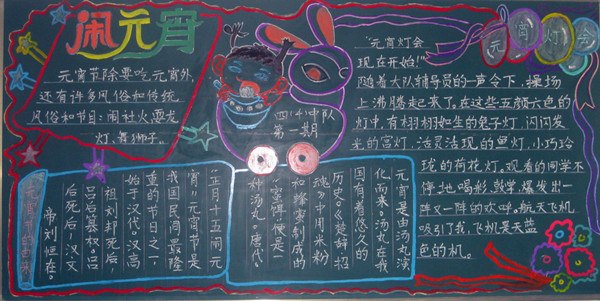 闹元宵
元宵节除要吃元宵外,
还有许多风俗和传统
风俗和节目:闹社火耍龙
灯、舞狮子。
四(4)中队
第一期
元宵灯会
"元宵灯会
现在开始!"
随着大队辅导员的一声令下,操场
上沸腾起来了。在这些五颜六色的
灯中,有栩栩如生的兔子灯、闪闪发
光的宫灯、活灵活现的鱼灯、小巧玲
珑的荷花灯。观看的同学不
停地喝彩,鼓掌,爆发出一
阵又一阵的欢呼。航天飞机
吸引了我,飞机是天蓝
色的机。
"正月十五闹元
宵"元宵节是
我国民间最隆
重的节日之一,
始于汉代。汉高
祖刘邦死后,
吕后篡权。吕
后死后,汉文
帝刘恒在。
元宵是由汤丸演
化而来。汤丸在我
国有着悠久的
历史。《楚辞·招
魂》中用米粉
和蜂蜜制成的
"蜜饵"便是一
种汤丸。唐代。